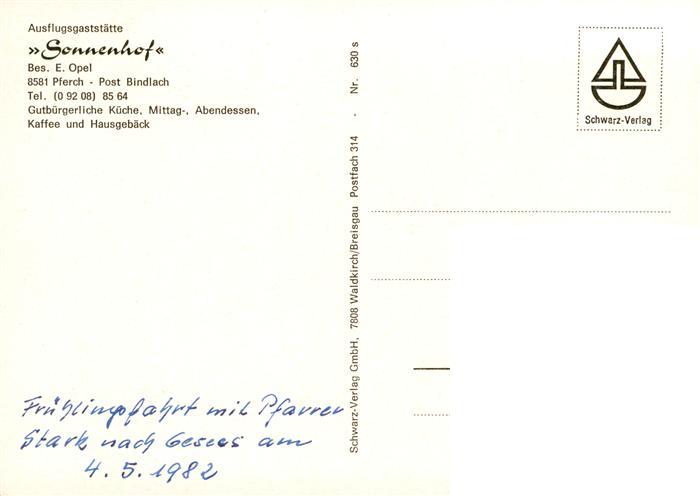 Ausflugsgaststätte
»Sonnenhof«
Bes. E. Opel
8581 Pferch - Post Bindlach
Tel. (0 92 08) 85 64
Gutbürgerliche Küche, Mittag-, Abendessen,
Kaffee und Hausgebäck
Schwarz-Verlag GmbH, 7808 Waldkirch/Breisgau Postfach 314 - Nr. 630 s
Schwarz-Verlag
Frühlingsfahrt mit Pfarrer
Stark nach Gesees am
4. 5. 1982